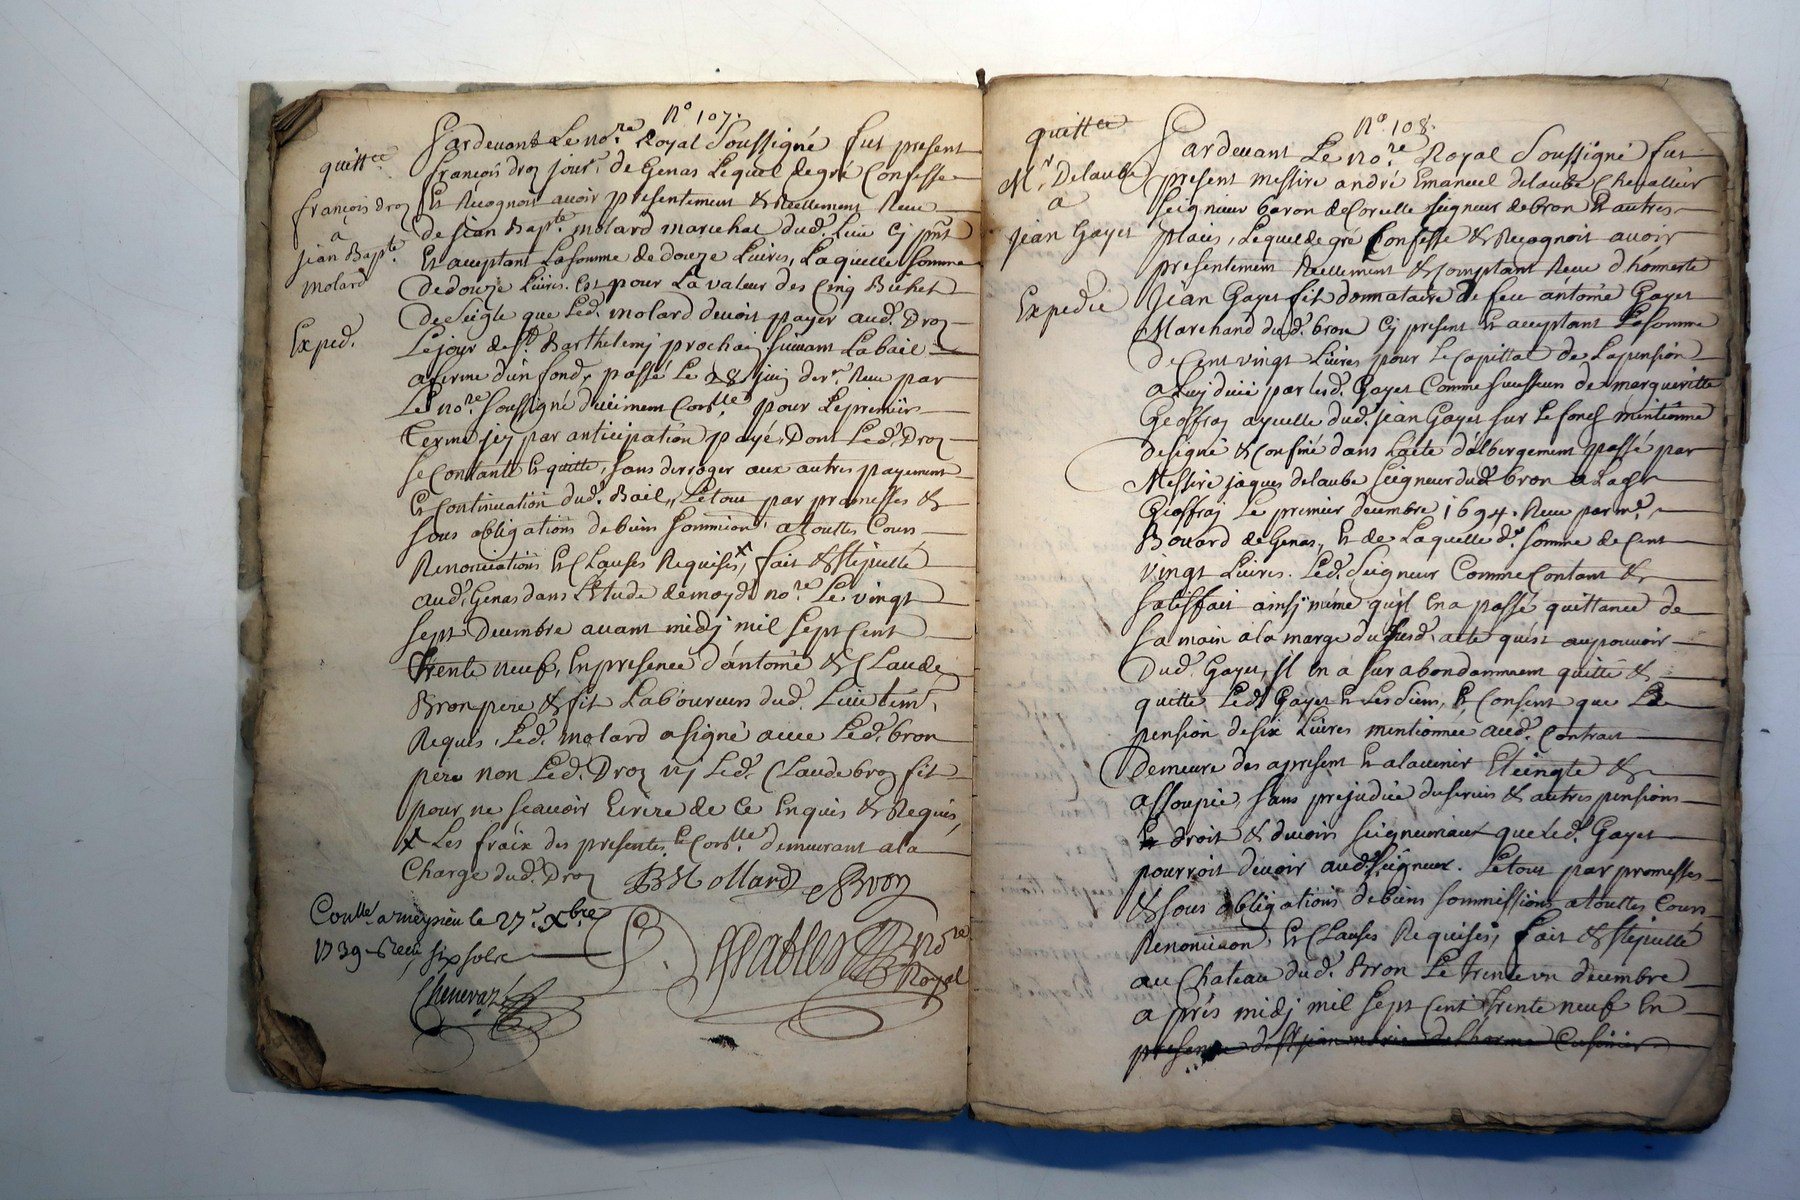 N° 107.
quitt.ce
françois droz
a
jean Bap.te
molard
Exped.
Pardevant Le no.re Royal Soussigné fut present
françois droz jour.r de Genas Lequel de gré Confesse
Et Recognoit avoir presentement & Reellement Receu
de jean Bap.te molard marechal dud. Lieu cy pnt
Et acceptant La somme de douze Livres, Laquelle somme
de douze Livres. Est pour La valeur des Cinq Bichet
de Seigle que Led. molard devoit payer aud. Droz
Le jour de St. Barthelemj prochain suivant La bail
a ferme d'un fond, passé Le 28 juin der.r Receu par
Le no.re Soussigné duëment Con.lle pour Le premier
terme jcy par anticipation payé, Dont Led. Droz
se Contante Et quitte, sans derroger aux autres payements
Et Continuation dud. Bail, Le tout par promesses &
sous obligations de biens sommions. a touttes Cours
Renonciations Et Clauses Requises x, fait & stipullé
aud. Genas dans L'Etude de moyd. no.re Le vingt
sept Decembre avant midj mil sept Cent
trente neuf, En presence d'antoine & Claude
Bron pere & fils Laboureurs dud. Lieu tem.
Requis, Led. molard a signé avec Led. bron
pere non Led. Droz nj Led. Claude broz fils
pour ne scavoir Ecrire de ce Enquis & Requis,
x Les fraix des presentes & Con.lle demeurant a la
Charge dud. Droz
JB Mollard Bron
Con.lle a meyzieu le 27.e Xbre
1739 - Receu six sols
Chenevaz
no.re
Royal
N° 108.
quitt.ce
M.r Delaube
a
Jean Gayet
Expedié
Pardevant Le no.re Royal Soussigné fut
present messire andré Emanuel delaube Chevallier
Seigneur baron de Corcelle seigneur de bron Et autres
places, Lequel de gré Confesse & Recognoit avoir
presentement Reellement & Comptant Receu d'honneste
Jean Gayet fils donnataire de feu antoine Gayet
Marchand dud. bron cy present Et acceptant La somme
de Cent vingt Livres pour Le Capittal de La pension
a Luy deüe par Led. Gayet Comme successeur de margueritte
Geoffray ayeulle dud. jean Gayet sur Le fonds mentionné
designé & Confiné dans L'acte d'albergement passé par
Messire jaques delaube Seigneur dud. bron a Lad.
Geoffraj Le premier decembre 1694. Receu par m.e
Bouard de Genas, Et de Laquelle d.e somme de Cent
vingt Livres. Led. Seigneur Comme Contant &
satisfait ainsj même qu'jl En a passé quittance de
sa main a la marge du susd. acte qui est au pouvoir
dud. Gayet, jl En a surabondamment quitté &
quitte Led. Gayet Et Les siens, Et Consent que La
pension de six Livres mentionnee aud. Contrat
demeure des apresent Et a lavenir Eteingte &
assoupie, sans prejudice du servis & autres pensions
Et droit & devoirs seigneuriaux que Led. Gayet
pourroit devoir aud. seigneur. Le tout par promesses
& sous obligations de biens sommissions a touttes Cours
Renonciaon. Et Clauses Requises, fait & stipullé
au Chateau dud. Bron Le trente un decembre
apres midj mil sept Cent trente neuf En
presence de Cusinier